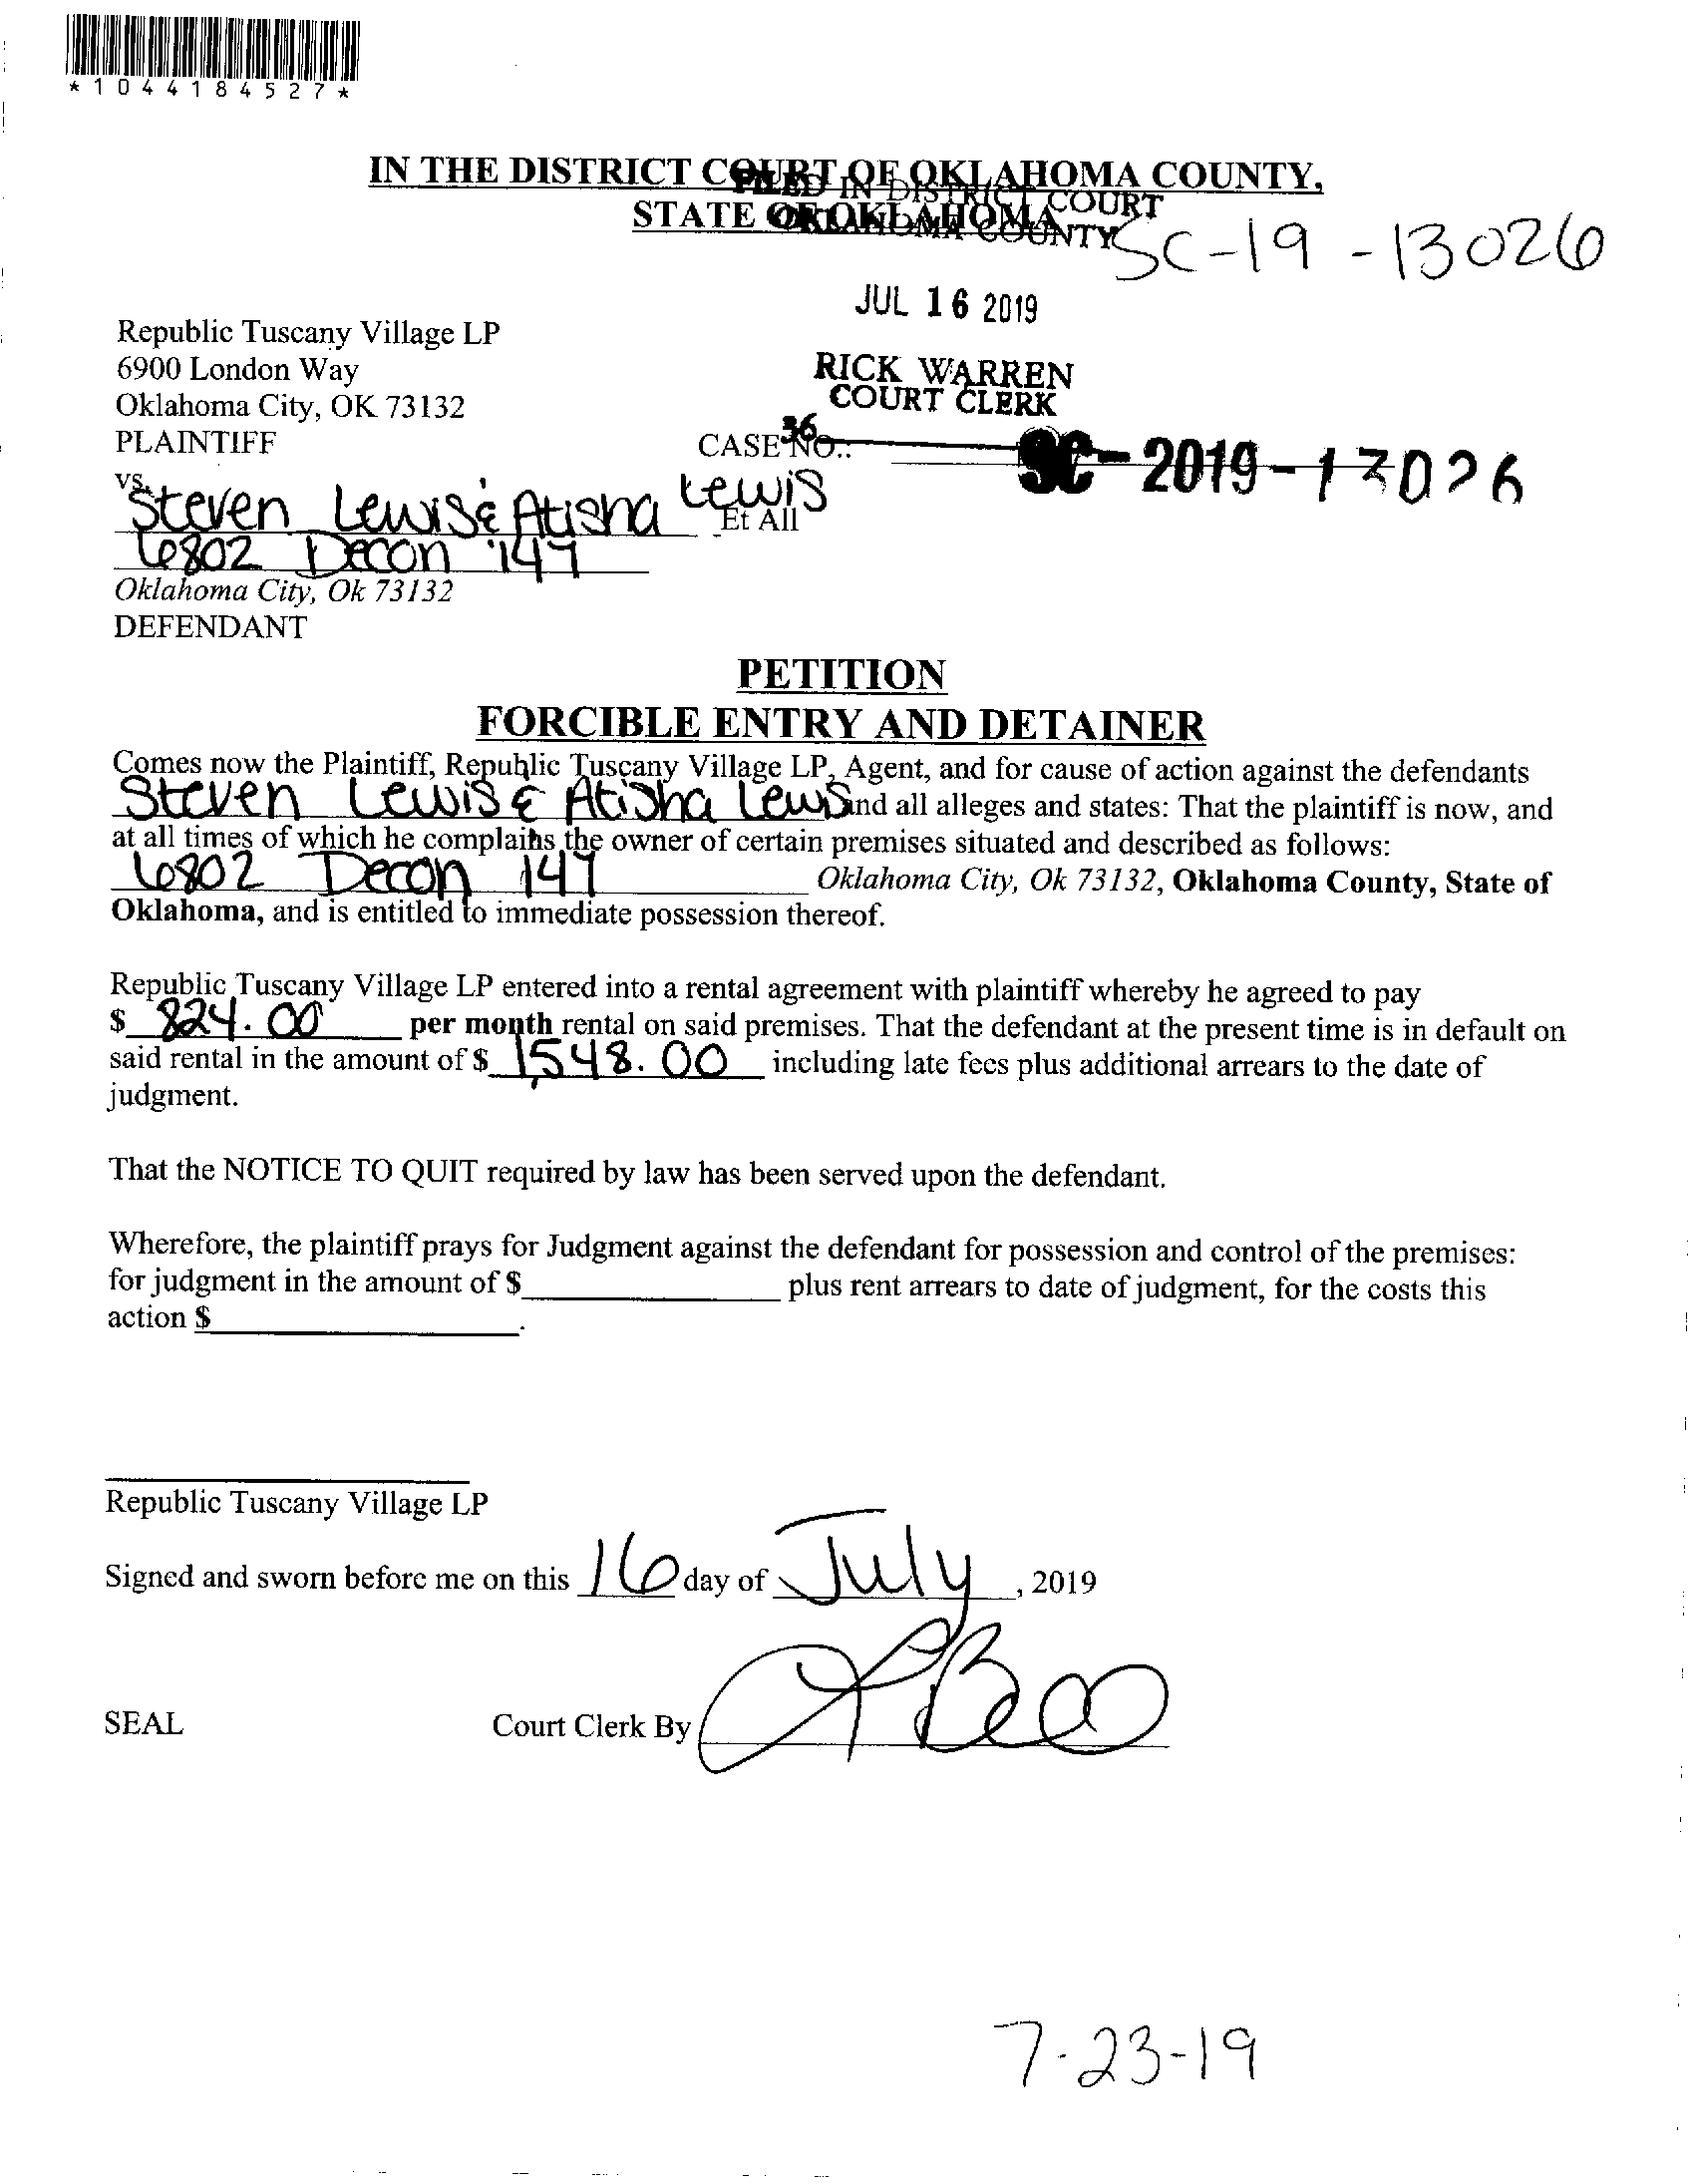 *1044184527*
IN THE DISTRICT COURT OF OKLAHOMA COUNTY,
STATE OF OKLAHOMA
FILED IN DISTRICT COURT
OKLAHOMA COUNTY
SC-19-13026
JUL 16 2019
Republic Tuscany Village LP
6900 London Way
Oklahoma City, OK 73132
PLAINTIFF
RICK WARREN
COURT CLERK
36
CASE NO.:
SC-2019-13026
vs.
Steven Lewis & Atisha Lewis
Et All
6802 Decon 147
Oklahoma City, Ok 73132
DEFENDANT
PETITION
FORCIBLE ENTRY AND DETAINER
Comes now the Plaintiff, Republic Tuscany Village LP, Agent, and for cause of action against the defendants
Steven Lewis & Atisha Lewis and all alleges and states: That the plaintiff is now, and
at all times of which he complains the owner of certain premises situated and described as follows:
6802 Decon 147 Oklahoma City, Ok 73132, Oklahoma County, State of
Oklahoma, and is entitled to immediate possession thereof.
Republic Tuscany Village LP entered into a rental agreement with plaintiff whereby he agreed to pay
$ 824.00 per month rental on said premises. That the defendant at the present time is in default on
said rental in the amount of $ 1,548.00 including late fees plus additional arrears to the date of
judgment.
That the NOTICE TO QUIT required by law has been served upon the defendant.
Wherefore, the plaintiff prays for Judgment against the defendant for possession and control of the premises:
for judgment in the amount of $ plus rent arrears to date of judgment, for the costs this
action $ .
Republic Tuscany Village LP
Signed and sworn before me on this 16 day of July, 2019
SEAL Court Clerk By
7-23-19